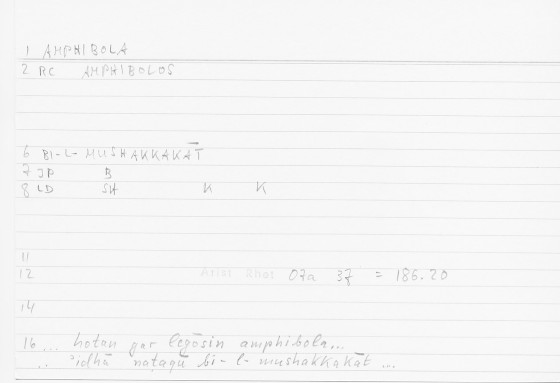 1 AMPHIBOLA
2 RC AMPHIBOLOS
6 BI-L-MUSHAKKAKĀT
7 JP B
8 LD SH K K
11
12 Arist Rhet 07a 37 = 186.20
14
16 ... hotan gar legōsin amphibola...
.. ʾidhā naṭaqū bi-l-mushakkakāt ...